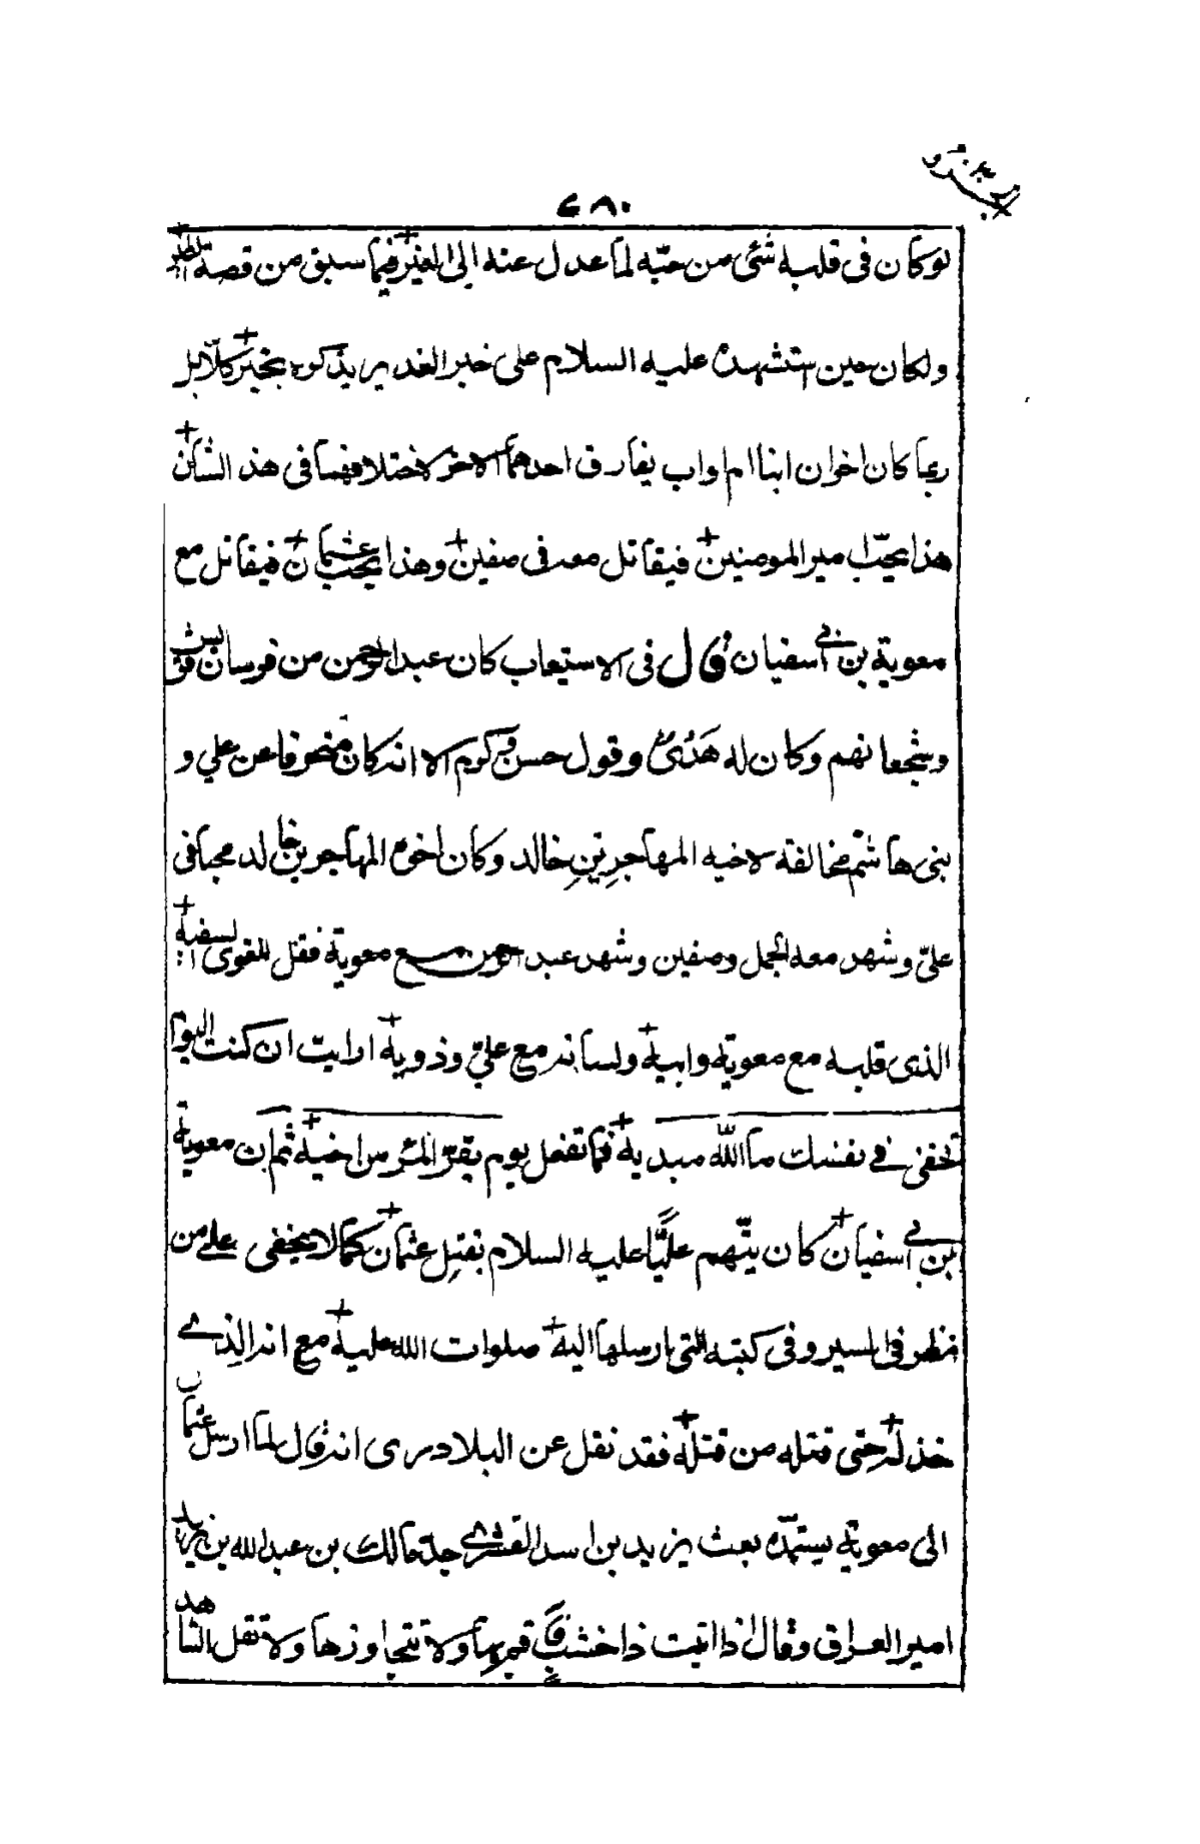 الجزو ٣٠
٤٨٠
لو كان فى قلبه شئ من حبّه لما عدل عنه الى الغير فيما سبق من قصة
ولكان حين استشهده عليه السلام على خبر الغدير يذكره بخير كلّا بل
ربما كان اخوان ابنا ام واب يفارق احدهما الاخر لاختلافهما فى هذ الشأن
هذا يحبّ امير المومنين فيقاتل معه فى صفين وهذا يحبّ عثمان فيقاتل مع
معوية بن ابي سفيان قال فى الاستيعاب كان عبد الرحمن من فرسان قريش
وشجعانهم وكان له هَدْىٌ وقول حسن وكرم الا انه كان منحرفا عن علي و
بنى هاشم مخالفة لاخيه المهاجرِ بنِ خالد وكان اخوه المهاجر بن خالد محبا فى
علىّ وشهد معه الجمل وصفين وشهد عبد الرحمن مع معوية فقل للقوى السفيه
الذى قلبه مع معوية وابيه ولسانه مع علىّ وذويه ارايت ان كنت اليوم
تخفى فے نفسك ما الله مبديه فما تفعل يوم يفرّ المرء من اخيه ثم ان معوية
بن ابي سفيان كان يتّهم عليًّا عليه السلام بقتل عثمان كما لا يخفى على من
نظر فى السير وفى كتبه التى ارسلها اليه صلوات الله عليه مع انه الذے
خذله حتى قتله من قتله فقد نقل عن البلادرى انه قال لما ارسل عثمان
الى معوية يستمدّه بعث يزيد بن اسد القشرے جدّ خالد بن عبد الله بن يزيد
امير العراق وقال اذا اتيت ذا خشب فاقم بها ولا تتجاوزها ولا تقل الشاهد